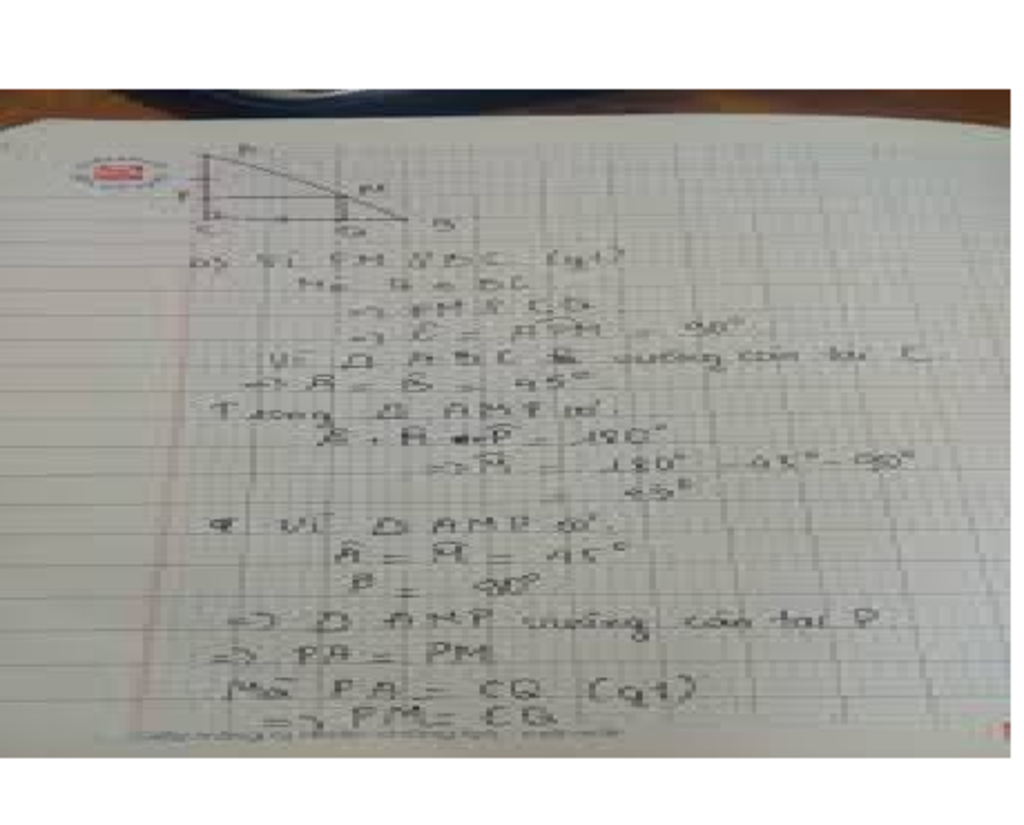 A
P M
C Q B
a) Vì PM // BC (gt)
Mà Q ∈ BC
=> PM // CQ
=> Ĉ = APM = 90°
Vì Δ ABC vuông cân tại C
=> A = B = 45°
Trong Δ AMP có:
+ A + P = 180°
=> M̂ = 180° - 45° - 90°
45°
Vì Δ AMP có:
Â = M̂ = 45°
P = 90°
=> Δ AMP vuông cân tại P
=> PA = PM
Mà PA = CQ (gt)
=> PM = CQ